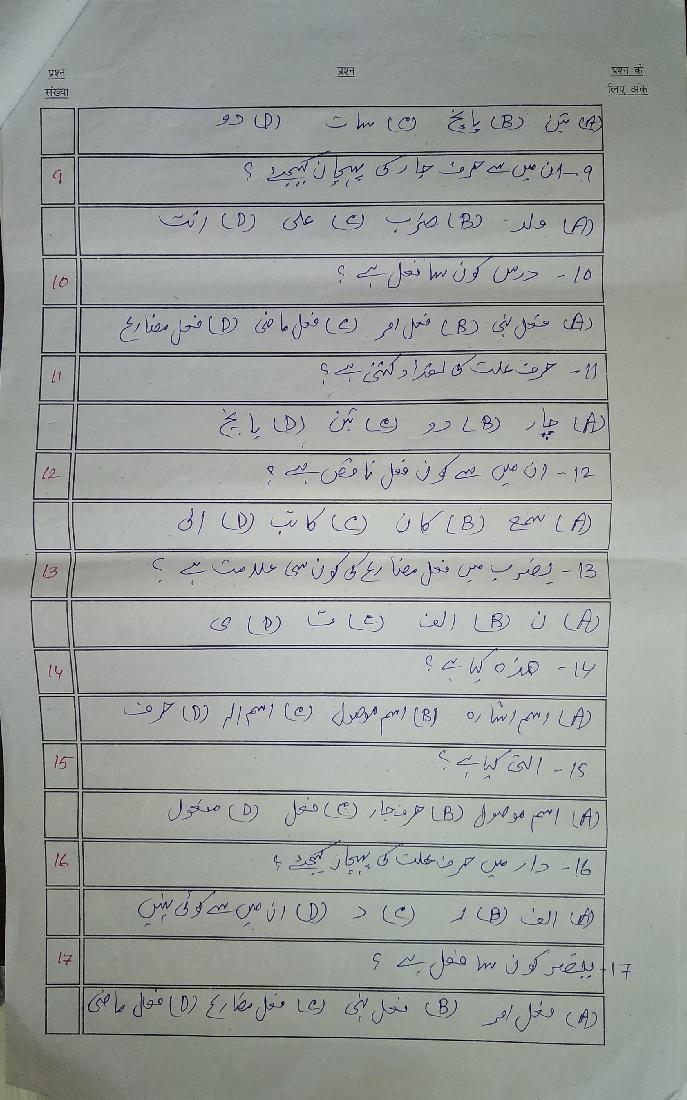 प्रश्न संख्या प्रश्न प्रश्न के लिए अंक
(A) تین (B) پانچ (C) سات (D) دو
9 9- ان میں سے حرف جار کی پہچان کیجیے ؟
(A) ولد (B) ضرب (C) علی (D) انت
10 10- درس کون سا فعل ہے ؟
(A) فعل نہی (B) فعل امر (C) فعل ماضی (D) فعل مضارع
11 11- حرف علت کی تعداد کتنی ہے ؟
(A) چار (B) دو (C) تین (D) پانچ
12 12- ان میں سے کون فعل ناقص ہے ؟
(A) سمع (B) کان (C) کاتب (D) الی
13 13- یضرب میں فعل مضارع کی کون سی علامت ہے ؟
(A) ن (B) الف (C) ت (D) ی
14 14- ھذہ کیا ہے ؟
(A) اسم اشارہ (B) اسم موصول (C) اسم الہ (D) حرف
15 15- التی کیا ہے ؟
(A) اسم موصول (B) حرف جار (C) فعل (D) مفعول
16 16- دار میں حرف علت کی پہچان کیجئے ؟
(A) الف (B) ر (C) د (D) ان میں سے کوئی نہیں
17 17- کون سا فعل ہے ؟
(A) فعل امر (B) فعل نہی (C) فعل مضارع (D) فعل ماضی